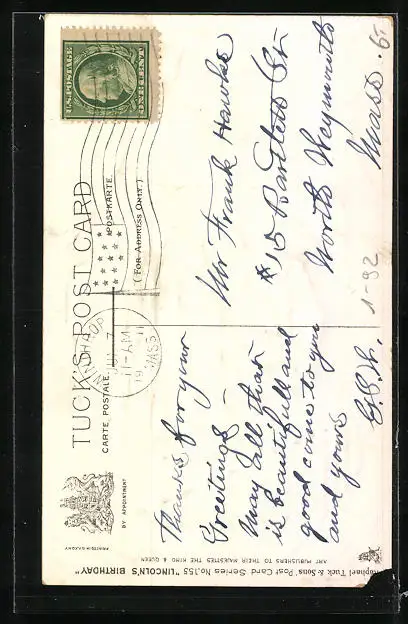 TUCK'S POST CARD
CARTE POSTALE.
POSTKARTE.
(FOR ADDRESS ONLY.)
BY APPOINTMENT
PRINTED IN SAXONY
U.S. POSTAGE
ONE CENT
11-AM
19 11
MASS.
Thanks for your
Greetings –
May all that
is beautifull and
good come to you
and yours
Mr Frank Hawke
#15 Bartlett St.
North Weymouth
Mass.
1-92
Raphael Tuck & Sons' Post Card Series No. 155 "LINCOLN'S BIRTHDAY"
ART PUBLISHERS TO THEIR MAJESTIES THE KING & QUEEN